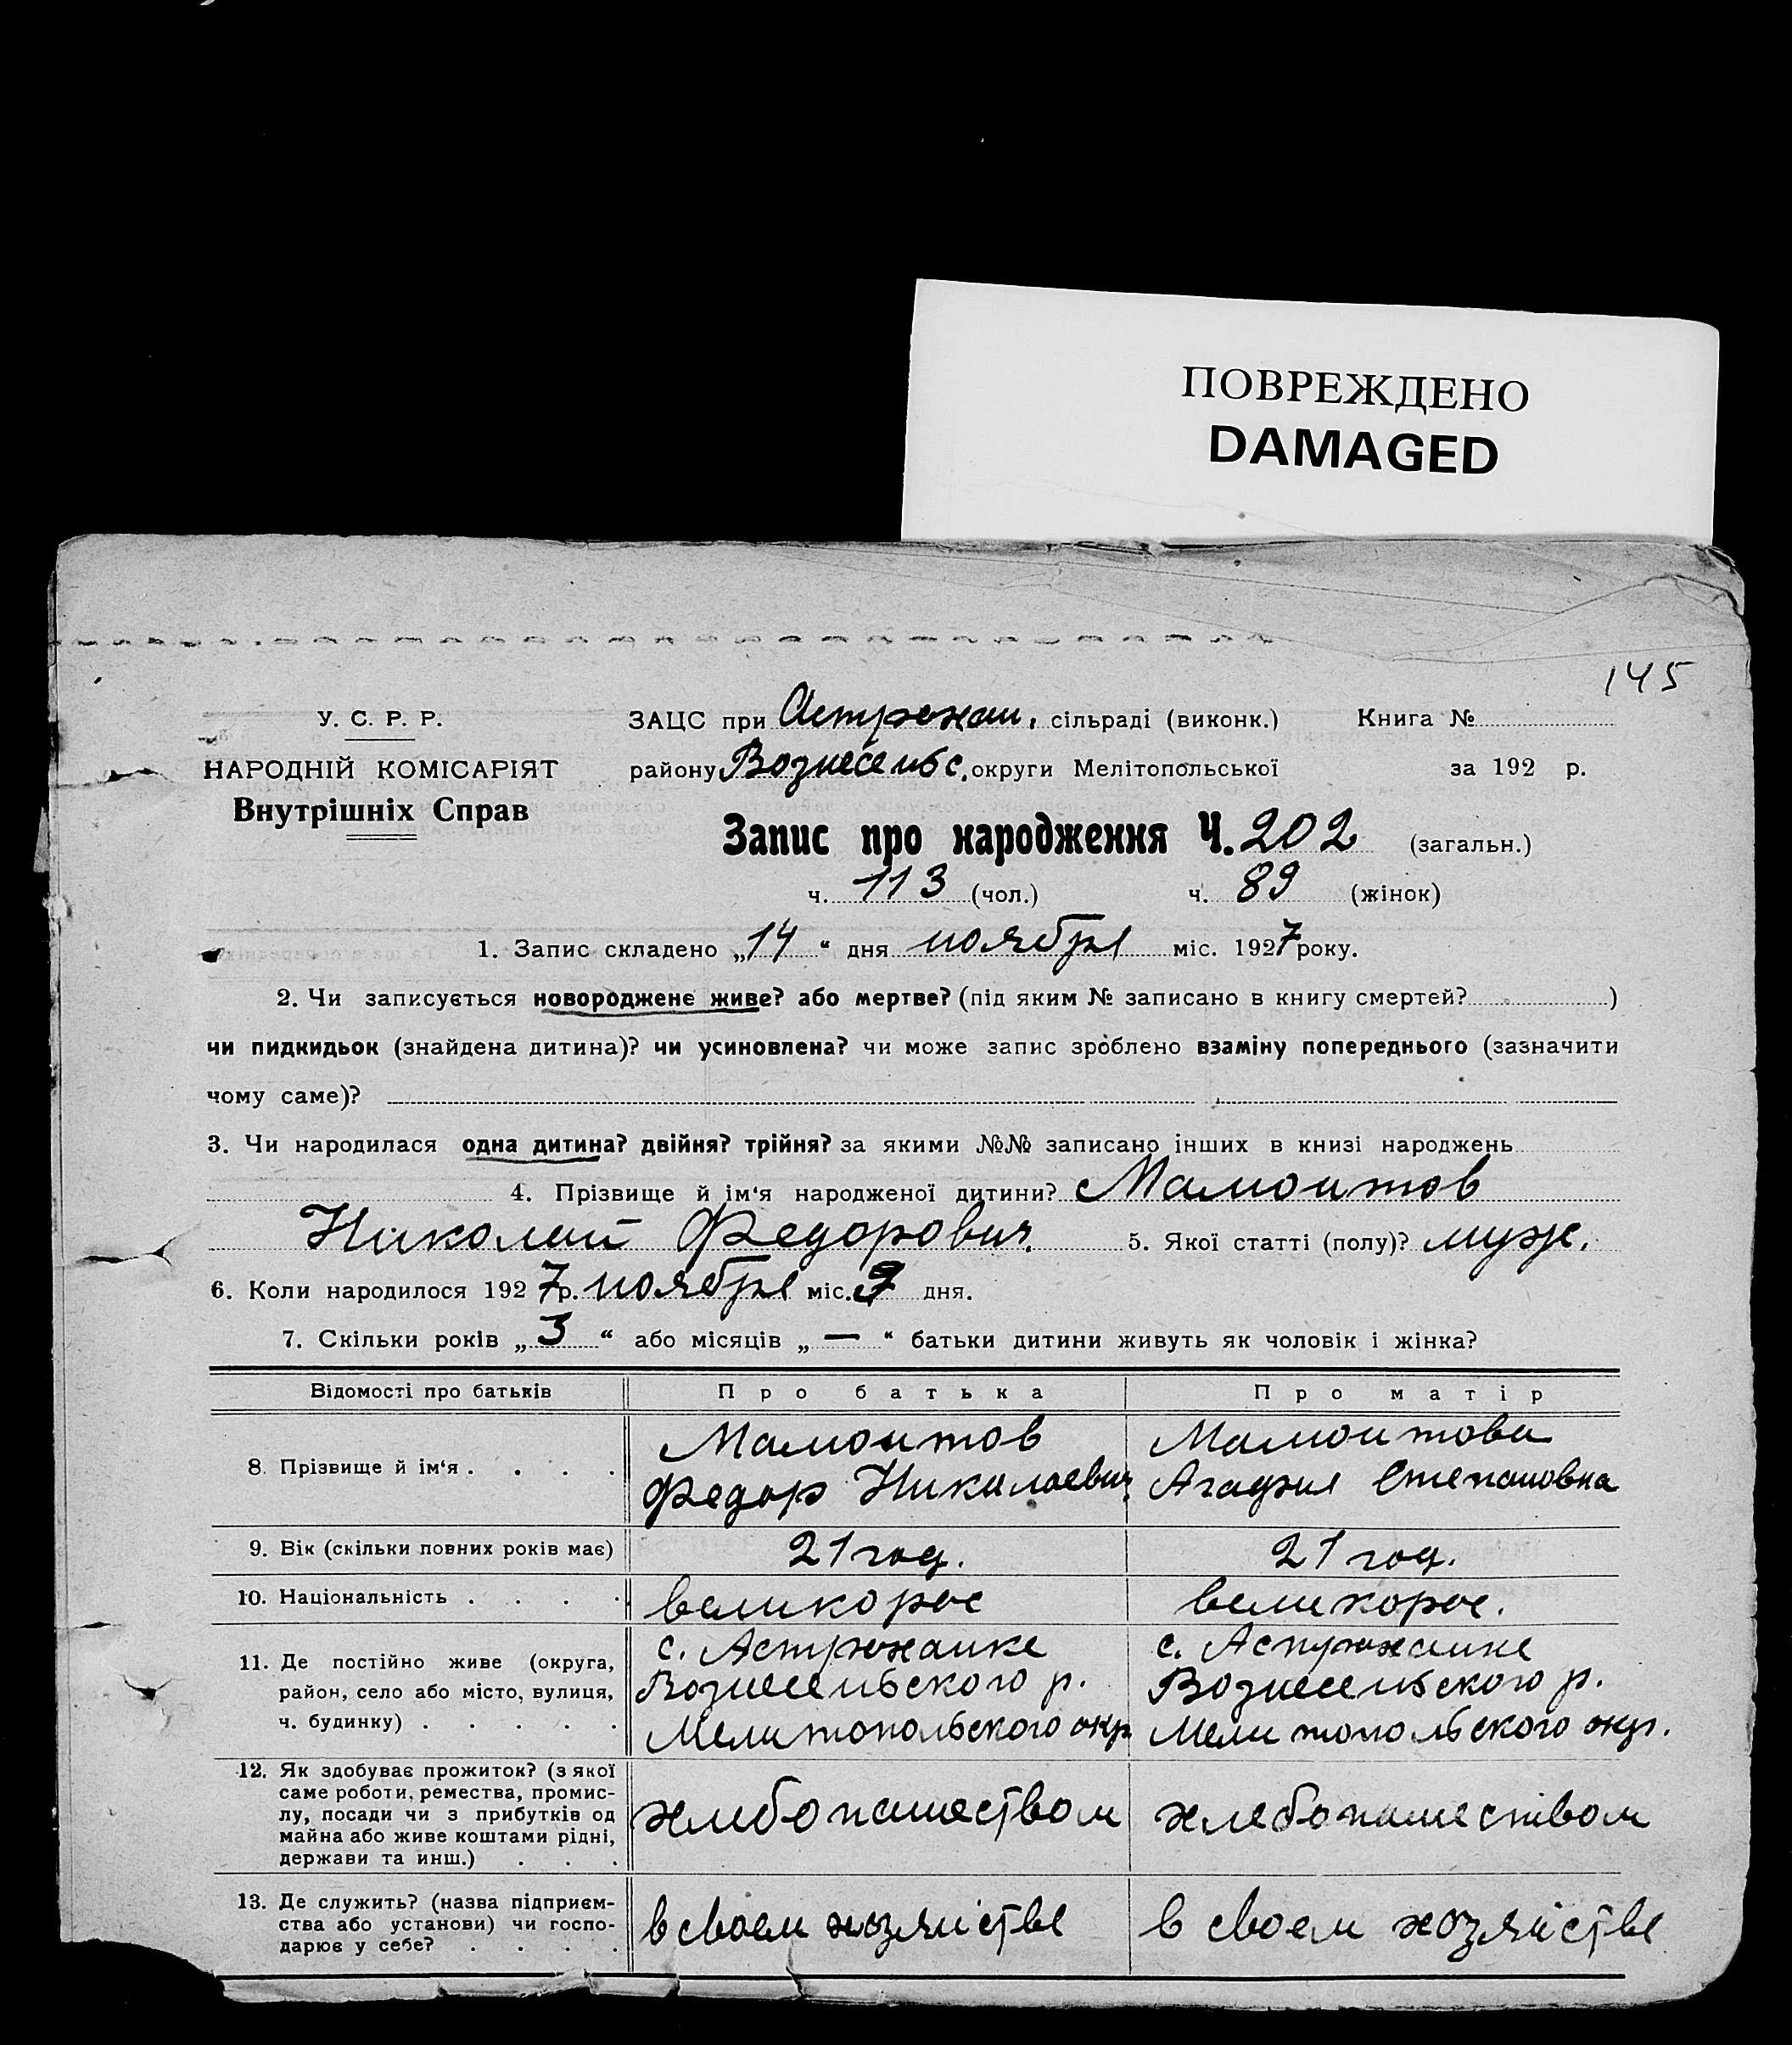 ПОВРЕЖДЕНО
DAMAGED
145
У. С. Р. Р.
НАРОДНІЙ КОМІСАРІЯТ
Внутрішніх Справ
ЗАЦС при Астрахан. сільраді (виконк.) Книга №
району Вознесеньс. округи Мелітопольської за 192 р.
Запис про народження Ч. 202 (загальн.)
ч. 113 (чол.) ч. 89 (жінок)
1. Запис складено „14“ дня ноября міс. 1927 року.
2. Чи записується новороджене живе? або мертве? (під яким № записано в книгу смертей? )
чи пидкидьок (знайдена дитина)? чи усиновлена? чи може запис зроблено взаміну попереднього (зазначити
чому саме)?
3. Чи народилася одна дитина? двійня? трійня? за якими №№ записано інших в книзі народжень
4. Прізвище й ім‘я народженої дитини? Мамонтов
Николай Федорович. 5. Якої статті (полу)? муж.
6. Коли народилося 1927 р. ноября міс. 7 дня.
7. Скільки років „3“ або місяців „—“ батьки дитини живуть як чоловік і жінка?
Відомості про батьків Про батька Про матір
8. Прізвище й ім‘я . . . .
Мамонтов
Федор Николаевич.
Мамонтова
Агафия Степановна
9. Вік (скільки повних років має) 21 год. 21 год.
10. Національність . . . . великорос великорос.
11. Де постійно живе (округа,
район, село або місто, вулиця,
ч. будинку) . . . . .
с. Астраханке
Вознесеньского р.
Мелитопольского окр.
с. Астраханке
Вознесеньского р.
Мелитопольского окр.
12. Як здобуває прожиток? (з якої
саме роботи, ремества, промис-
лу, посади чи з прибутків од
майна або живе коштами рідні,
держави та инш.) . . .
хлебопашеством
хлебопашеством
13. Де служить? (назва підприєм-
ства або установи) чи госпо-
дарює у себе? . . . .
в своем хозяйстве
в своем хозяйстве